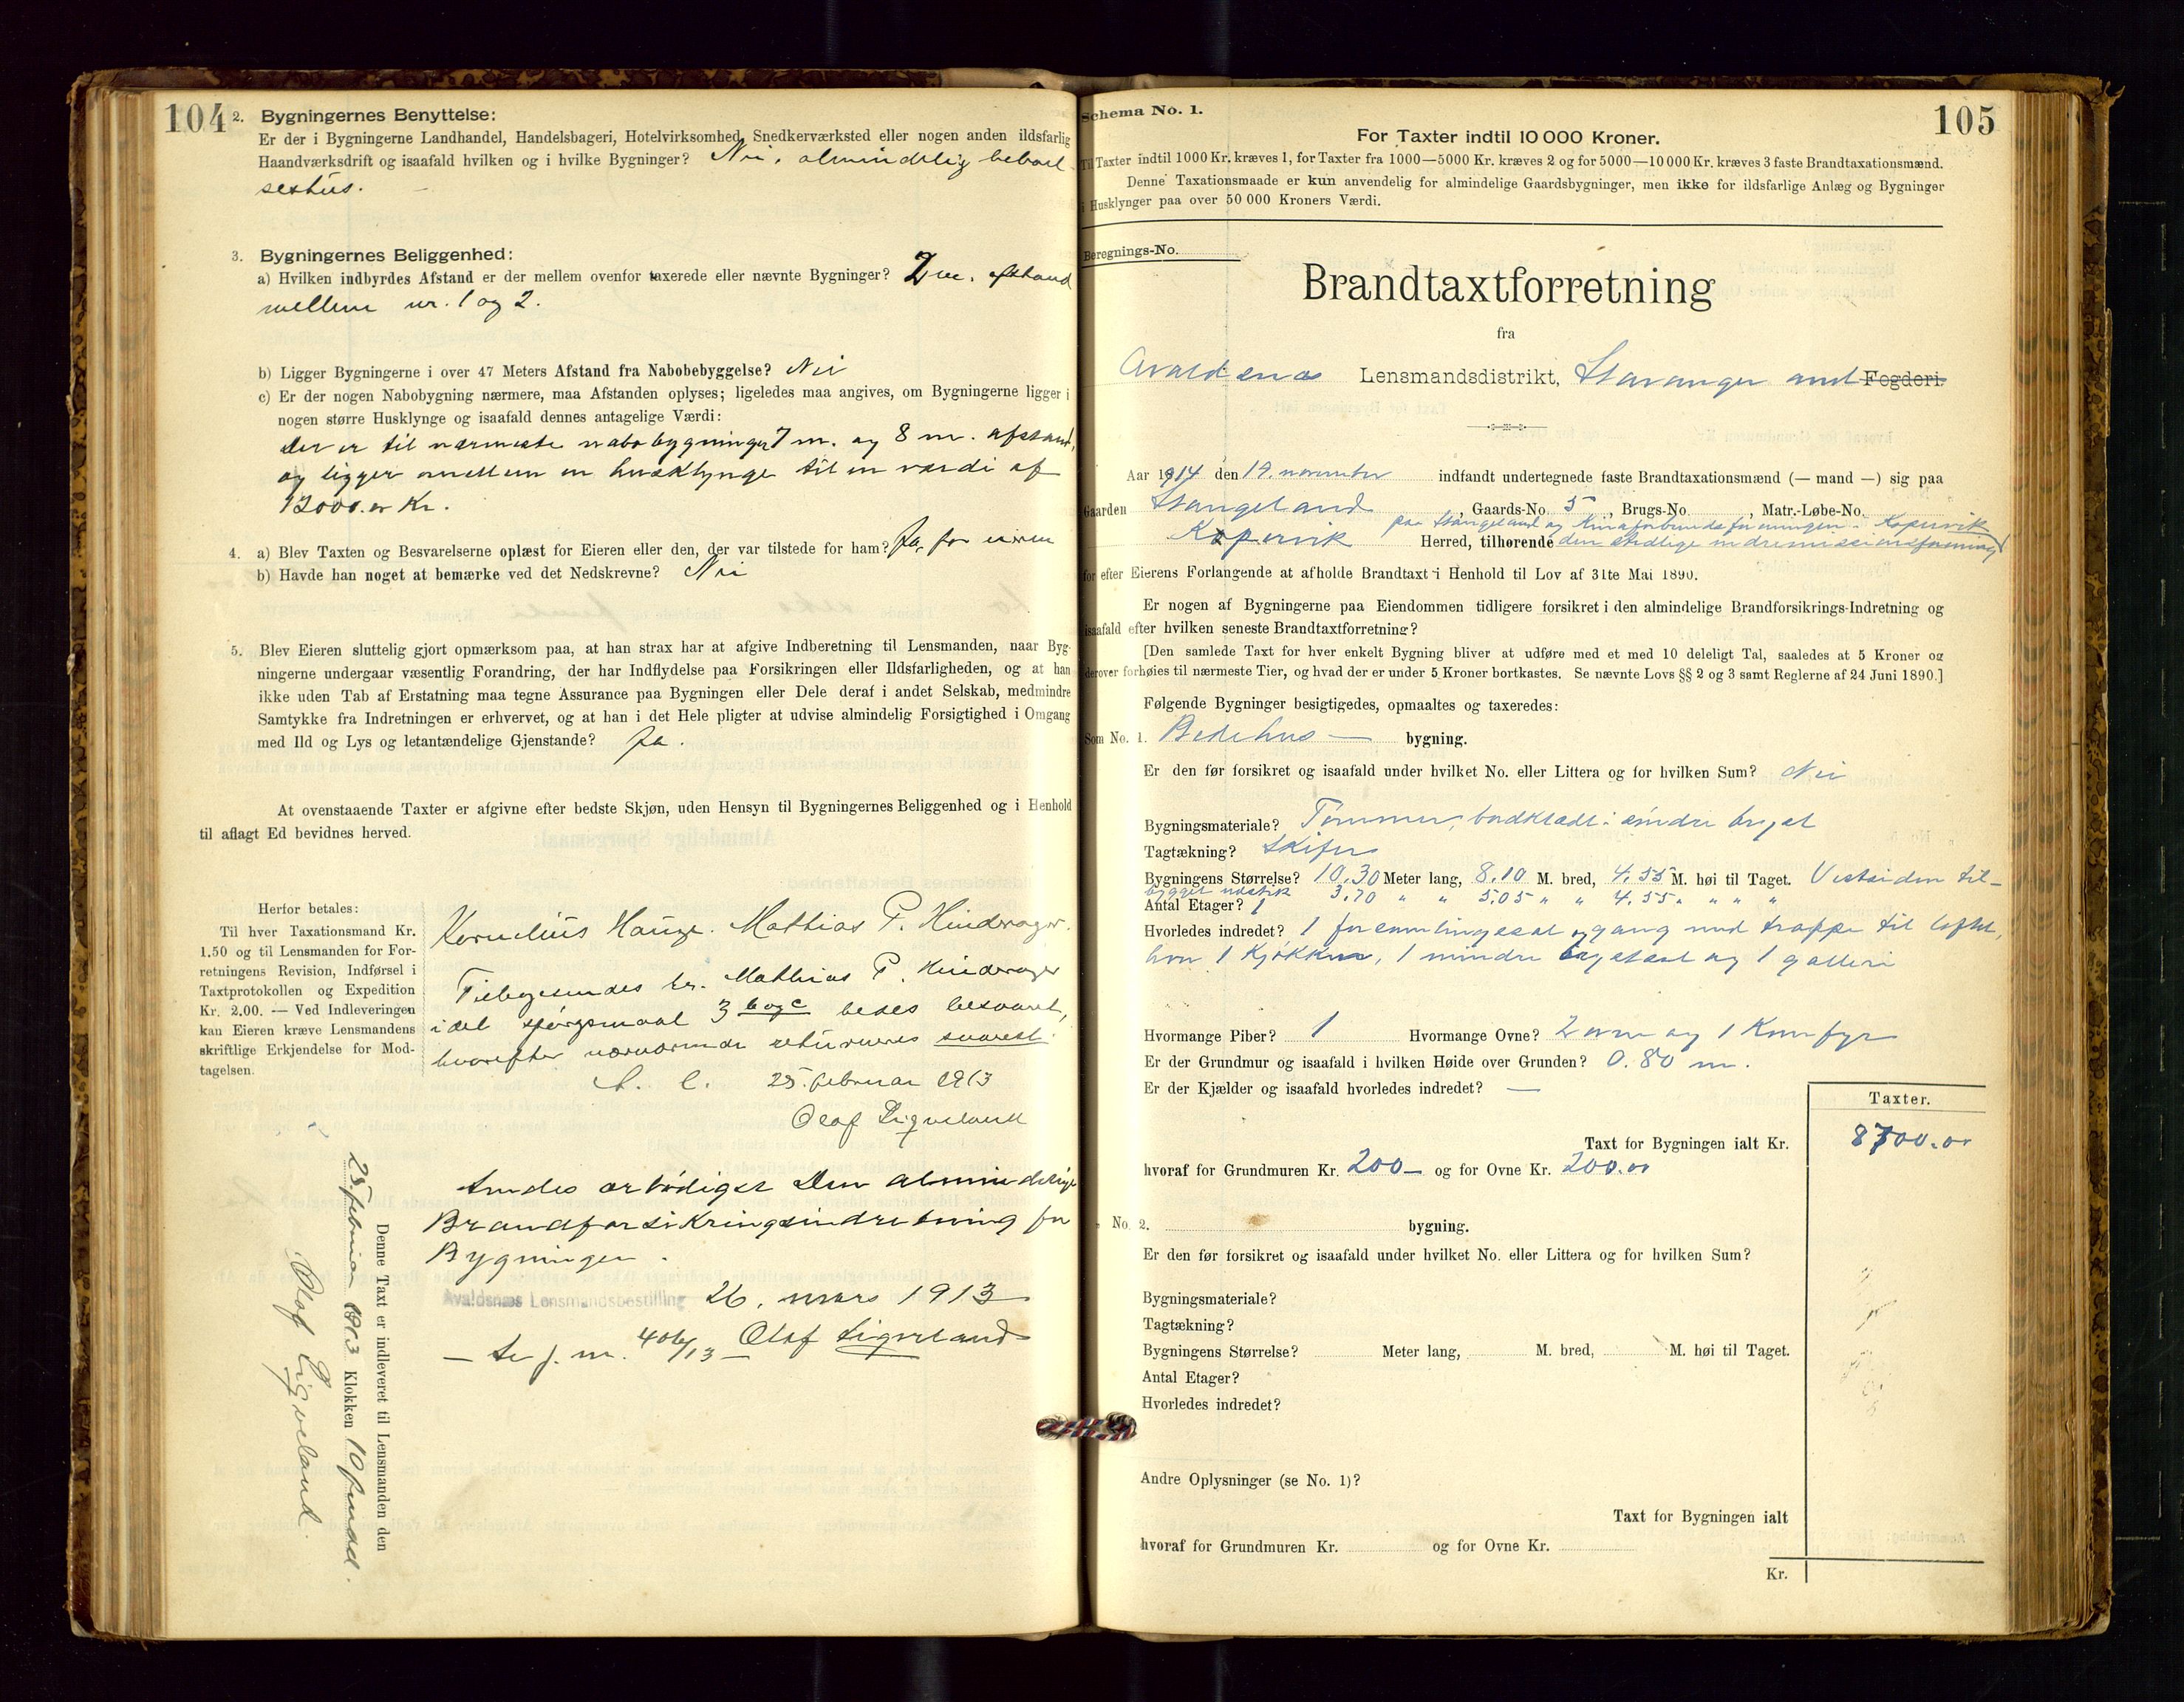 104
2. Bygningernes Benyttelse:
Er der i Bygningerne Landhandel, Handelsbageri, Hotelvirksomhed, Snedkerværksted eller nogen anden ildsfarlig
Haandværksdrift og isaafald hvilken og i hvilke Bygninger? Nei, almindelig beboel-
seshus.
3. Bygningernes Beliggenhed:
a) Hvilken indbyrdes Afstand er der mellem ovenfor taxerede eller nævnte Bygninger? 2 m. afstand
mellem nr. 1 og 2.
b) Ligger Bygningerne i over 47 Meters Afstand fra Nabobebyggelse? Nei
c) Er der nogen Nabobygning nærmere, maa Afstanden oplyses; ligeledes maa angives, om Bygningerne ligger i
nogen større Husklynge og isaafald dennes antagelige Værdi:
Der er til nærmeste nabobygninger 7 m. og 8 m. afstand,
og ligger mellem en husklynge til en værdi af
12000.00 Kr.
4. a) Blev Taxten og Besvarelserne oplæst for Eieren eller den, der var tilstede for ham? Ja, for eieren
b) Havde han noget at bemærke ved det Nedskrevne? Nei
5. Blev Eieren sluttelig gjort opmærksom paa, at han strax har at afgive Indberetning til Lensmanden, naar Byg-
ningerne undergaar væsentlig Forandring, der har Indflydelse paa Forsikringen eller Ildsfarligheden, og at han
ikke uden Tab af Erstatning maa tegne Assurance paa Bygningen eller Dele deraf i andet Selskab, medmindre
Samtykke fra Indretningen er erhvervet, og at han i det Hele pligter at udvise almindelig Forsigtighed i Omgang
med Ild og Lys og letantændelige Gjenstande? Ja.
At ovenstaaende Taxter er afgivne efter bedste Skjøn, uden Hensyn til Bygningernes Beliggenhed og i Henhold
til aflagt Ed bevidnes herved.
Herfor betales:
Til hver Taxationsmand Kr.
1.50 og til Lensmanden for For-
retningens Revision, Indførsel i
Taxtprotokollen og Expedition
Kr. 2.00. — Ved Indleveringen
kan Eieren kræve Lensmandens
skriftlige Erkjendelse for Mod-
tagelsen.
Kornelius Hauge. Mathias P. Hinderager.
Tilbagesendes hr. Mathias P. Hinderager
idet spørgsmaal 3 b og c bedes besvaret,
hvorefter nærværende returneres snarest.
A. l. 25. februar 1913
Olaf Sigveland
Sendes ærbødigst Den almindelige
Brandforsikringsindretning for
Bygninger.
Avaldsnes Lensmandsbestilling 26. mars 1913
Olaf Sigveland
Denne Taxt er indleveret til Lensmanden den
25. februar 1913 Klokken 10 formd.
Olaf Sigveland.
105
Schema No. 1.
For Taxter indtil 10 000 Kroner.
Til Taxter indtil 1000 Kr. kræves 1, for Taxter fra 1000—5000 Kr. kræves 2 og for 5000—10 000 Kr. kræves 3 faste Brandtaxationsmænd.
Denne Taxationsmaade er kun anvendelig for almindelige Gaardsbygninger, men ikke for ildsfarlige Anlæg og Bygninger
i Husklynger paa over 50 000 Kroners Værdi.
Beregnings-No.
Brandtaxtforretning
fra
Avaldsnæs Lensmandsdistrikt, Stavanger amt Fogderi.
Aar 1914 den 19. november indfandt undertegnede faste Brandtaxationsmænd (— mand —) sig paa
Gaarden Stangeland, Gaards-No. 5, Brugs-No. , Matr.-Løbe-No.
paa Stangeland og Kinaforbundsforeningen i Kopervik
Kopervik Herred, tilhørende den stedlige indremissionsforening
for efter Eierens Forlangende at afholde Brandtaxt i Henhold til Lov af 31te Mai 1890.
Er nogen af Bygningerne paa Eiendommen tidligere forsikret i den almindelige Brandforsikrings-Indretning og
isaafald efter hvilken seneste Brandtaxtforretning?
[Den samlede Taxt for hver enkelt Bygning bliver at udføre med et med 10 deleligt Tal, saaledes at 5 Kroner og
derover forhøies til nærmeste Tier, og hvad der er under 5 Kroner bortkastes. Se nævnte Lovs §§ 2 og 3 samt Reglerne af 24 Juni 1890.]
Følgende Bygninger besigtigedes, opmaaltes og taxeredes:
Som No. 1. Bedehus — bygning.
Er den før forsikret og isaafald under hvilket No. eller Littera og for hvilken Sum? Nei
Bygningsmateriale? Tømmer, bordklædt
Tagtækning? Skifer
Bygningens Størrelse? 10.30 Meter lang, 8.10 M. bred, 4.55 M. høi til Taget. Vestsiden til-
bygget udstik 3.70 " " 5.05 " " 4.55 " " " "
Antal Etager? 1
Hvorledes indredet? 1 forsamlingssal og gang med trappe til loftet,
hvor 1 kjøkken, 1 mindre og 1 galleri
Hvormange Piber? 1 Hvormange Ovne? 2 ovne og 1 Komfyr
Er der Grundmur og isaafald i hvilken Høide over Grunden? 0.80 m.
Er der Kjælder og isaafald hvorledes indredet? —
Taxter.
Taxt for Bygningen ialt Kr. 8700.00
hvoraf for Grundmuren Kr. 200— og for Ovne Kr. 200.00
No. 2. bygning.
Er den før forsikret og isaafald under hvilket No. eller Littera og for hvilken Sum?
Bygningsmateriale?
Tagtækning?
Bygningens Størrelse? Meter lang, M. bred, M. høi til Taget.
Antal Etager?
Hvorledes indredet?
Andre Oplysninger (se No. 1)?
Taxt for Bygningen ialt
hvoraf for Grundmuren Kr. og for Ovne Kr.
Kr.